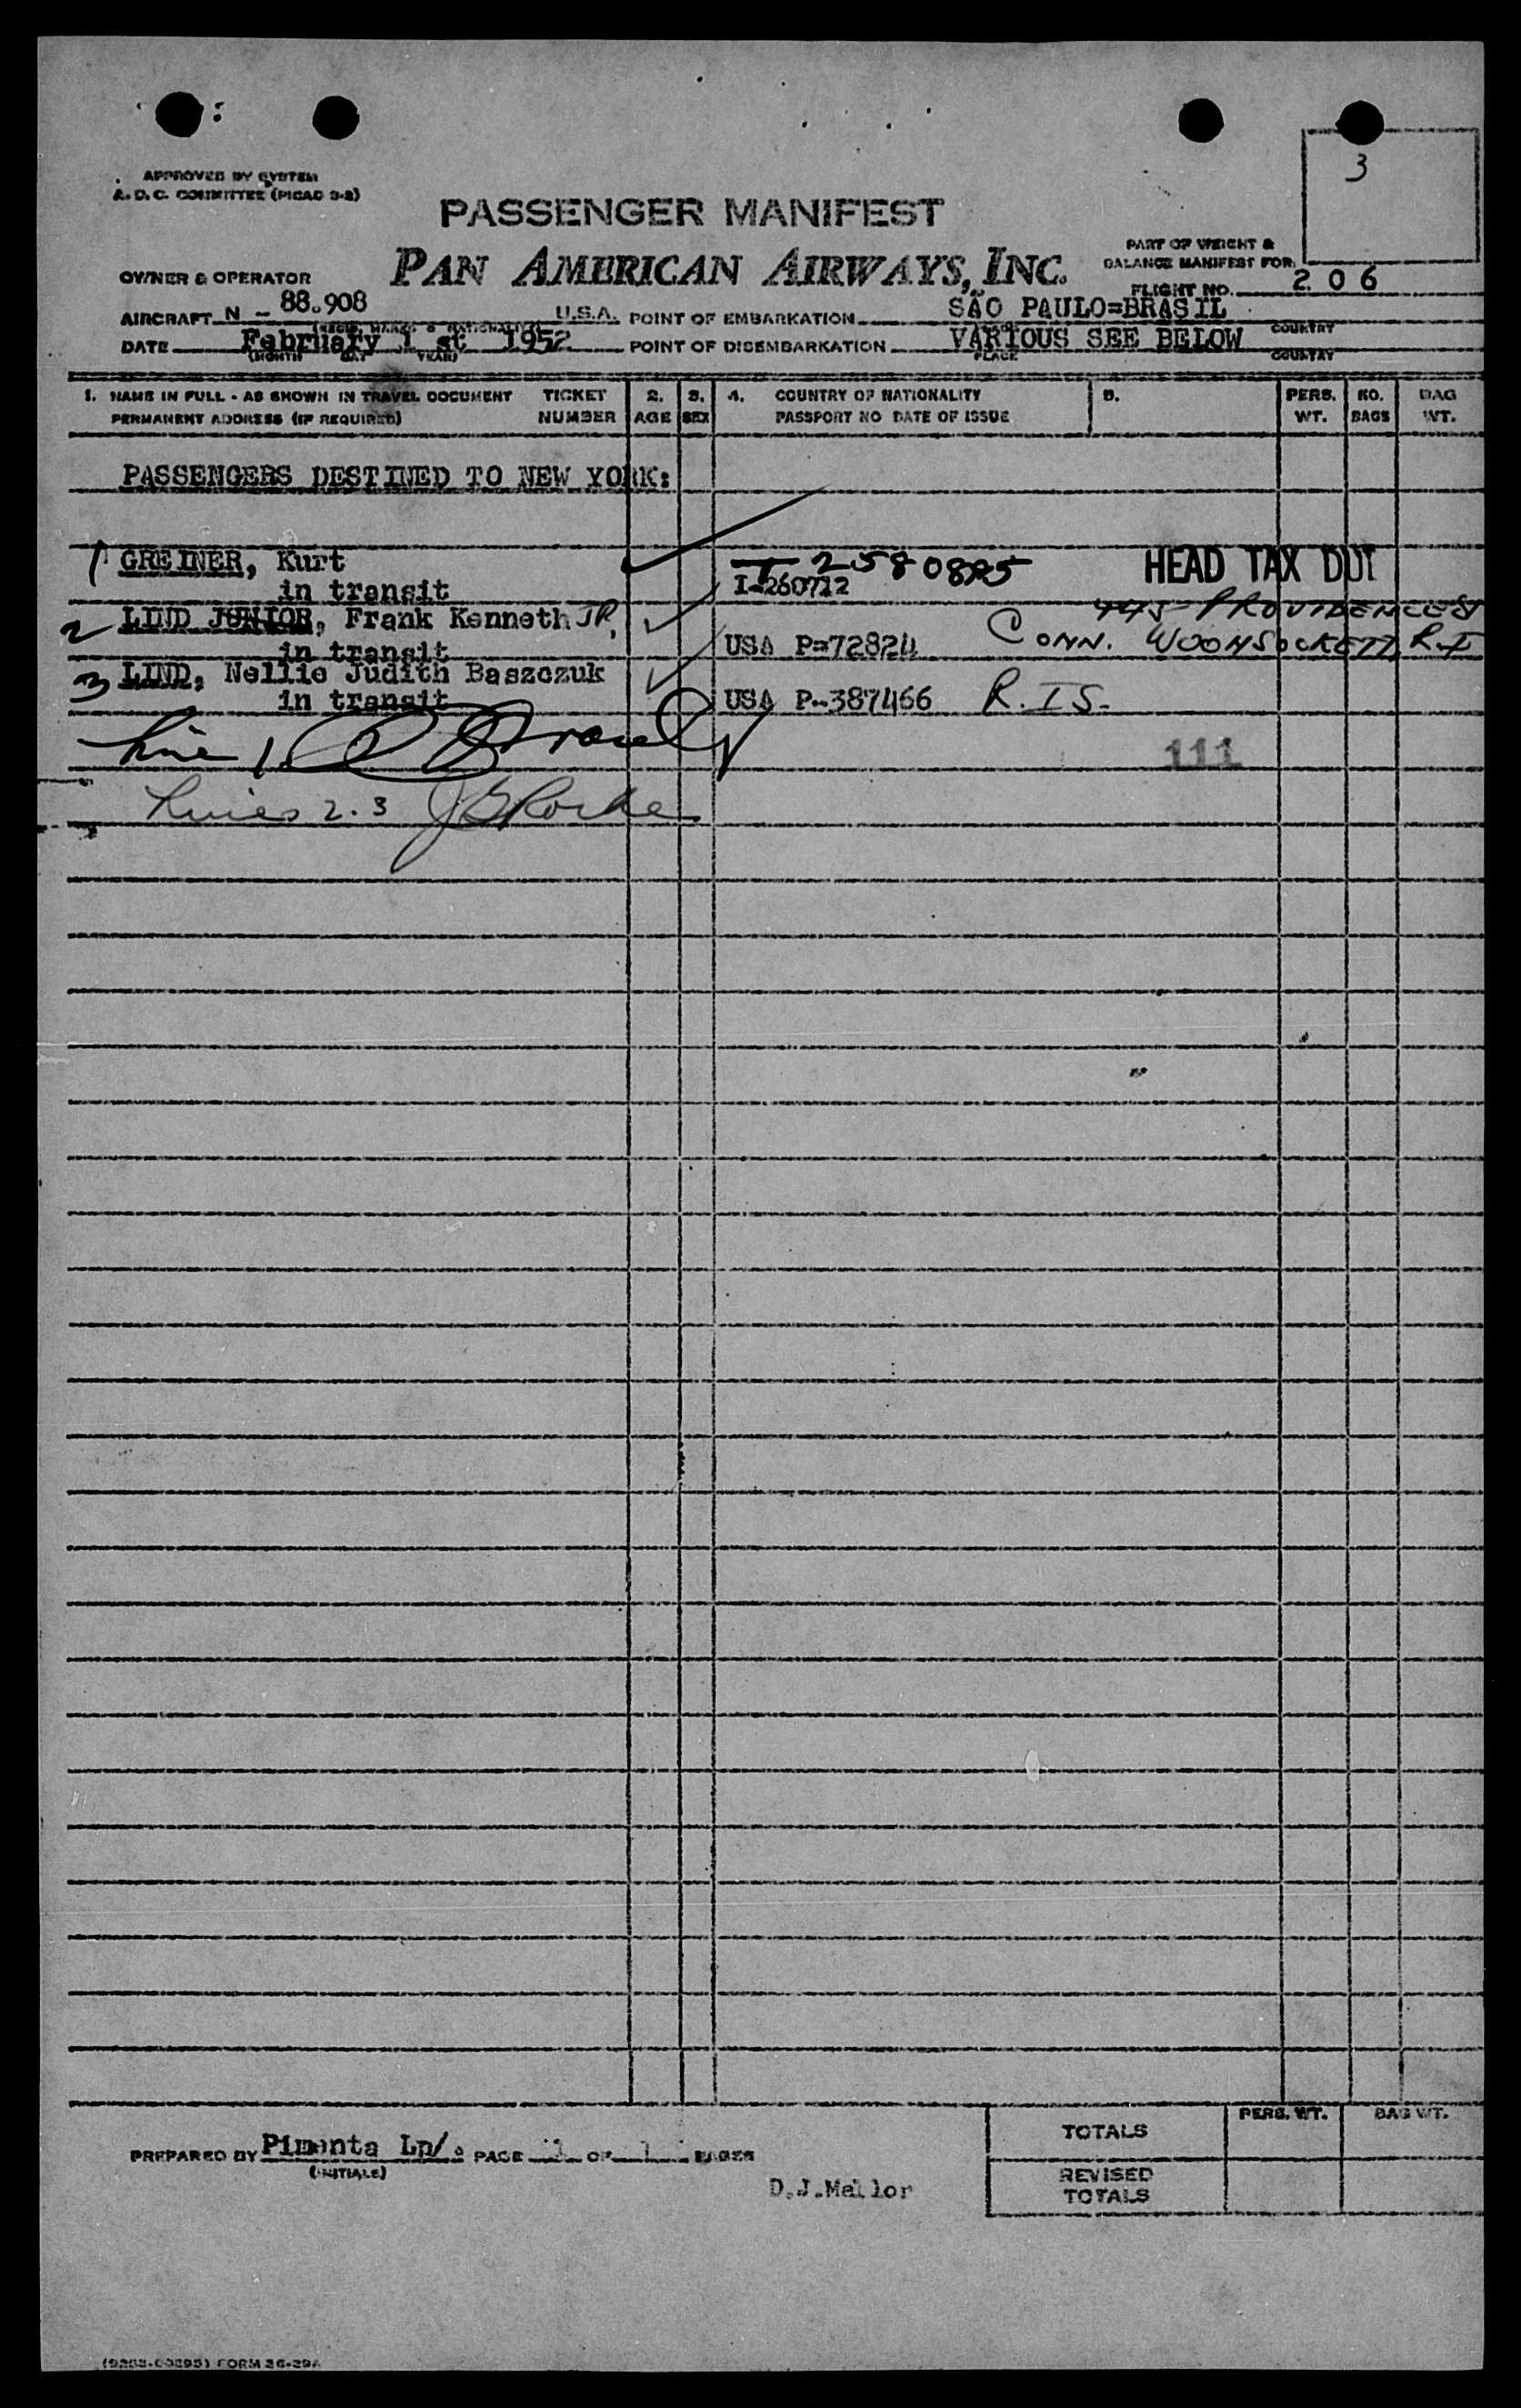 3
APPROVED BY SYSTEM
A.D.C. COMMITTEE (PICAO 3-2)
PASSENGER MANIFEST
PAN AMERICAN AIRWAYS, INC.
PART OF WEIGHT &
BALANCE MANIFEST FOR
OWNER & OPERATOR
FLIGHT NO. 2 0 6
AIRCRAFT N - 88.908 U.S.A. POINT OF EMBARKATION SÃO PAULO=BRASIL
COUNTRY
DATE February 1 st 1952 POINT OF DISEMBARKATION VARIOUS SEE BELOW
(MONTH DAY YEAR) PLACE COUNTRY
1. NAME IN FULL - AS SHOWN IN TRAVEL DOCUMENT TICKET 2. 3. 4. COUNTRY OF NATIONALITY 5. PERS. NO. BAG
PERMANENT ADDRESS (IF REQUIRED) NUMBER AGE SEX PASSPORT NO DATE OF ISSUE WT. BAGS WT.
PASSENGERS DESTINED TO NEW YORK:
1 GREINER, Kurt T 2580825 HEAD TAX DUT
in transit I-260712
2 LIND JUNIOR, Frank Kenneth JR, 445 PROVIDENCE ST
in transit USA P=72824 CONN. WOONSOCKETT, R.I
3 LIND, Nellie Judith Baszczuk
in transit USA P-387466 R.I S.
Line 1
111
Lines 2.3
PREPARED BY Pimenta Ln/. PAGE 1 OF 1 PAGES
(INITIALS)
D.J.Mallor
TOTALS PERS. WT. BAG WT.
REVISED
TOTALS
FORM 26-29A